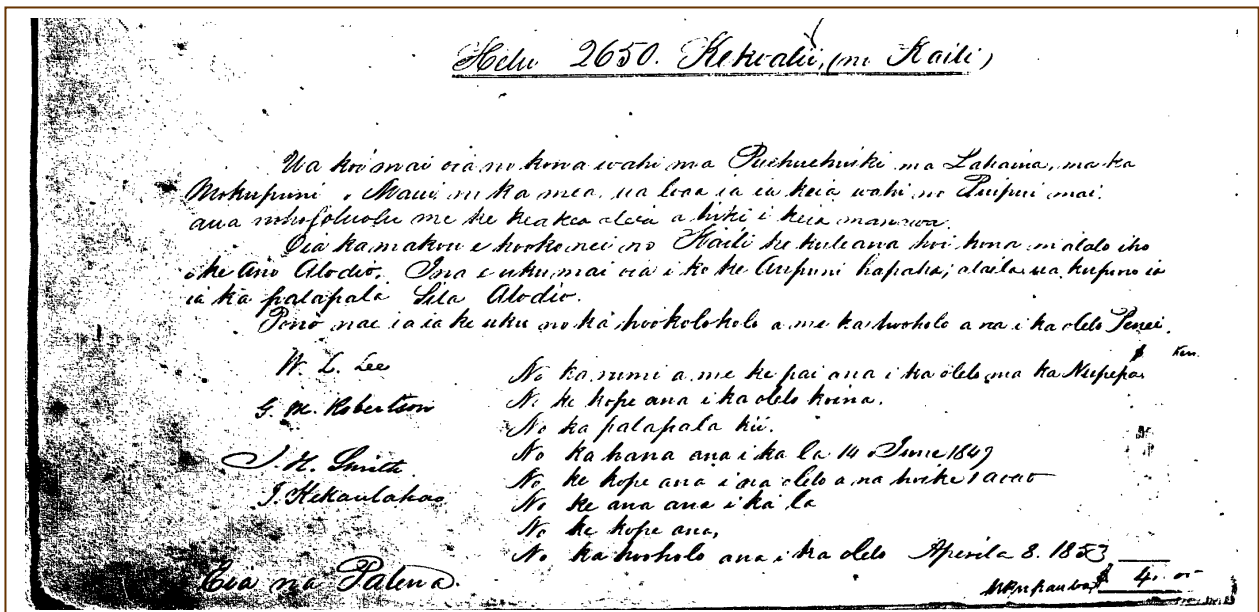 Helu 2650. Kekualii, (no Kaili)
Ua koi mai oia no kona wahi ma Puehuehuiki ma Lahaina, ma ka
Mokupuni o Maui no ka mea, ua loaa ia ia keia wahi no Puipui mai.
aua noho oluolu me ke keakea oleia a hiki i keia manawa.
Oia ka makou e hooko nei no Kaili he kuleana hoi kona malalo iho
o ke Ano Alodio. Ina e uku mai oia i ko ke Aupuni hapaha; alaila ua kupono ia
ia ka palapala Sila Alodio.
Pono nae ia ia ke uku no ka hookolokolo a me ka hooholo ana i ka olelo Penei.
$ Ken.
W. L. Lee
No ka rumi a me ke pai ana i ka olelo ma ka Nupepa
G. M. Robertson
No ke kope ana i ka olelo koina.
No ka palapala kii.
J. H. Smith
No ka hana ana i ka la 14 o June 1849
No ke kope ana i na olelo a na hoike
J. Kekaulahao
No ke ana ana i ka la
No ke kope ana,
No ka hooholo ana i ka olelo Aperila 8. 1853
Eia na Palena.
$ 4.. 00